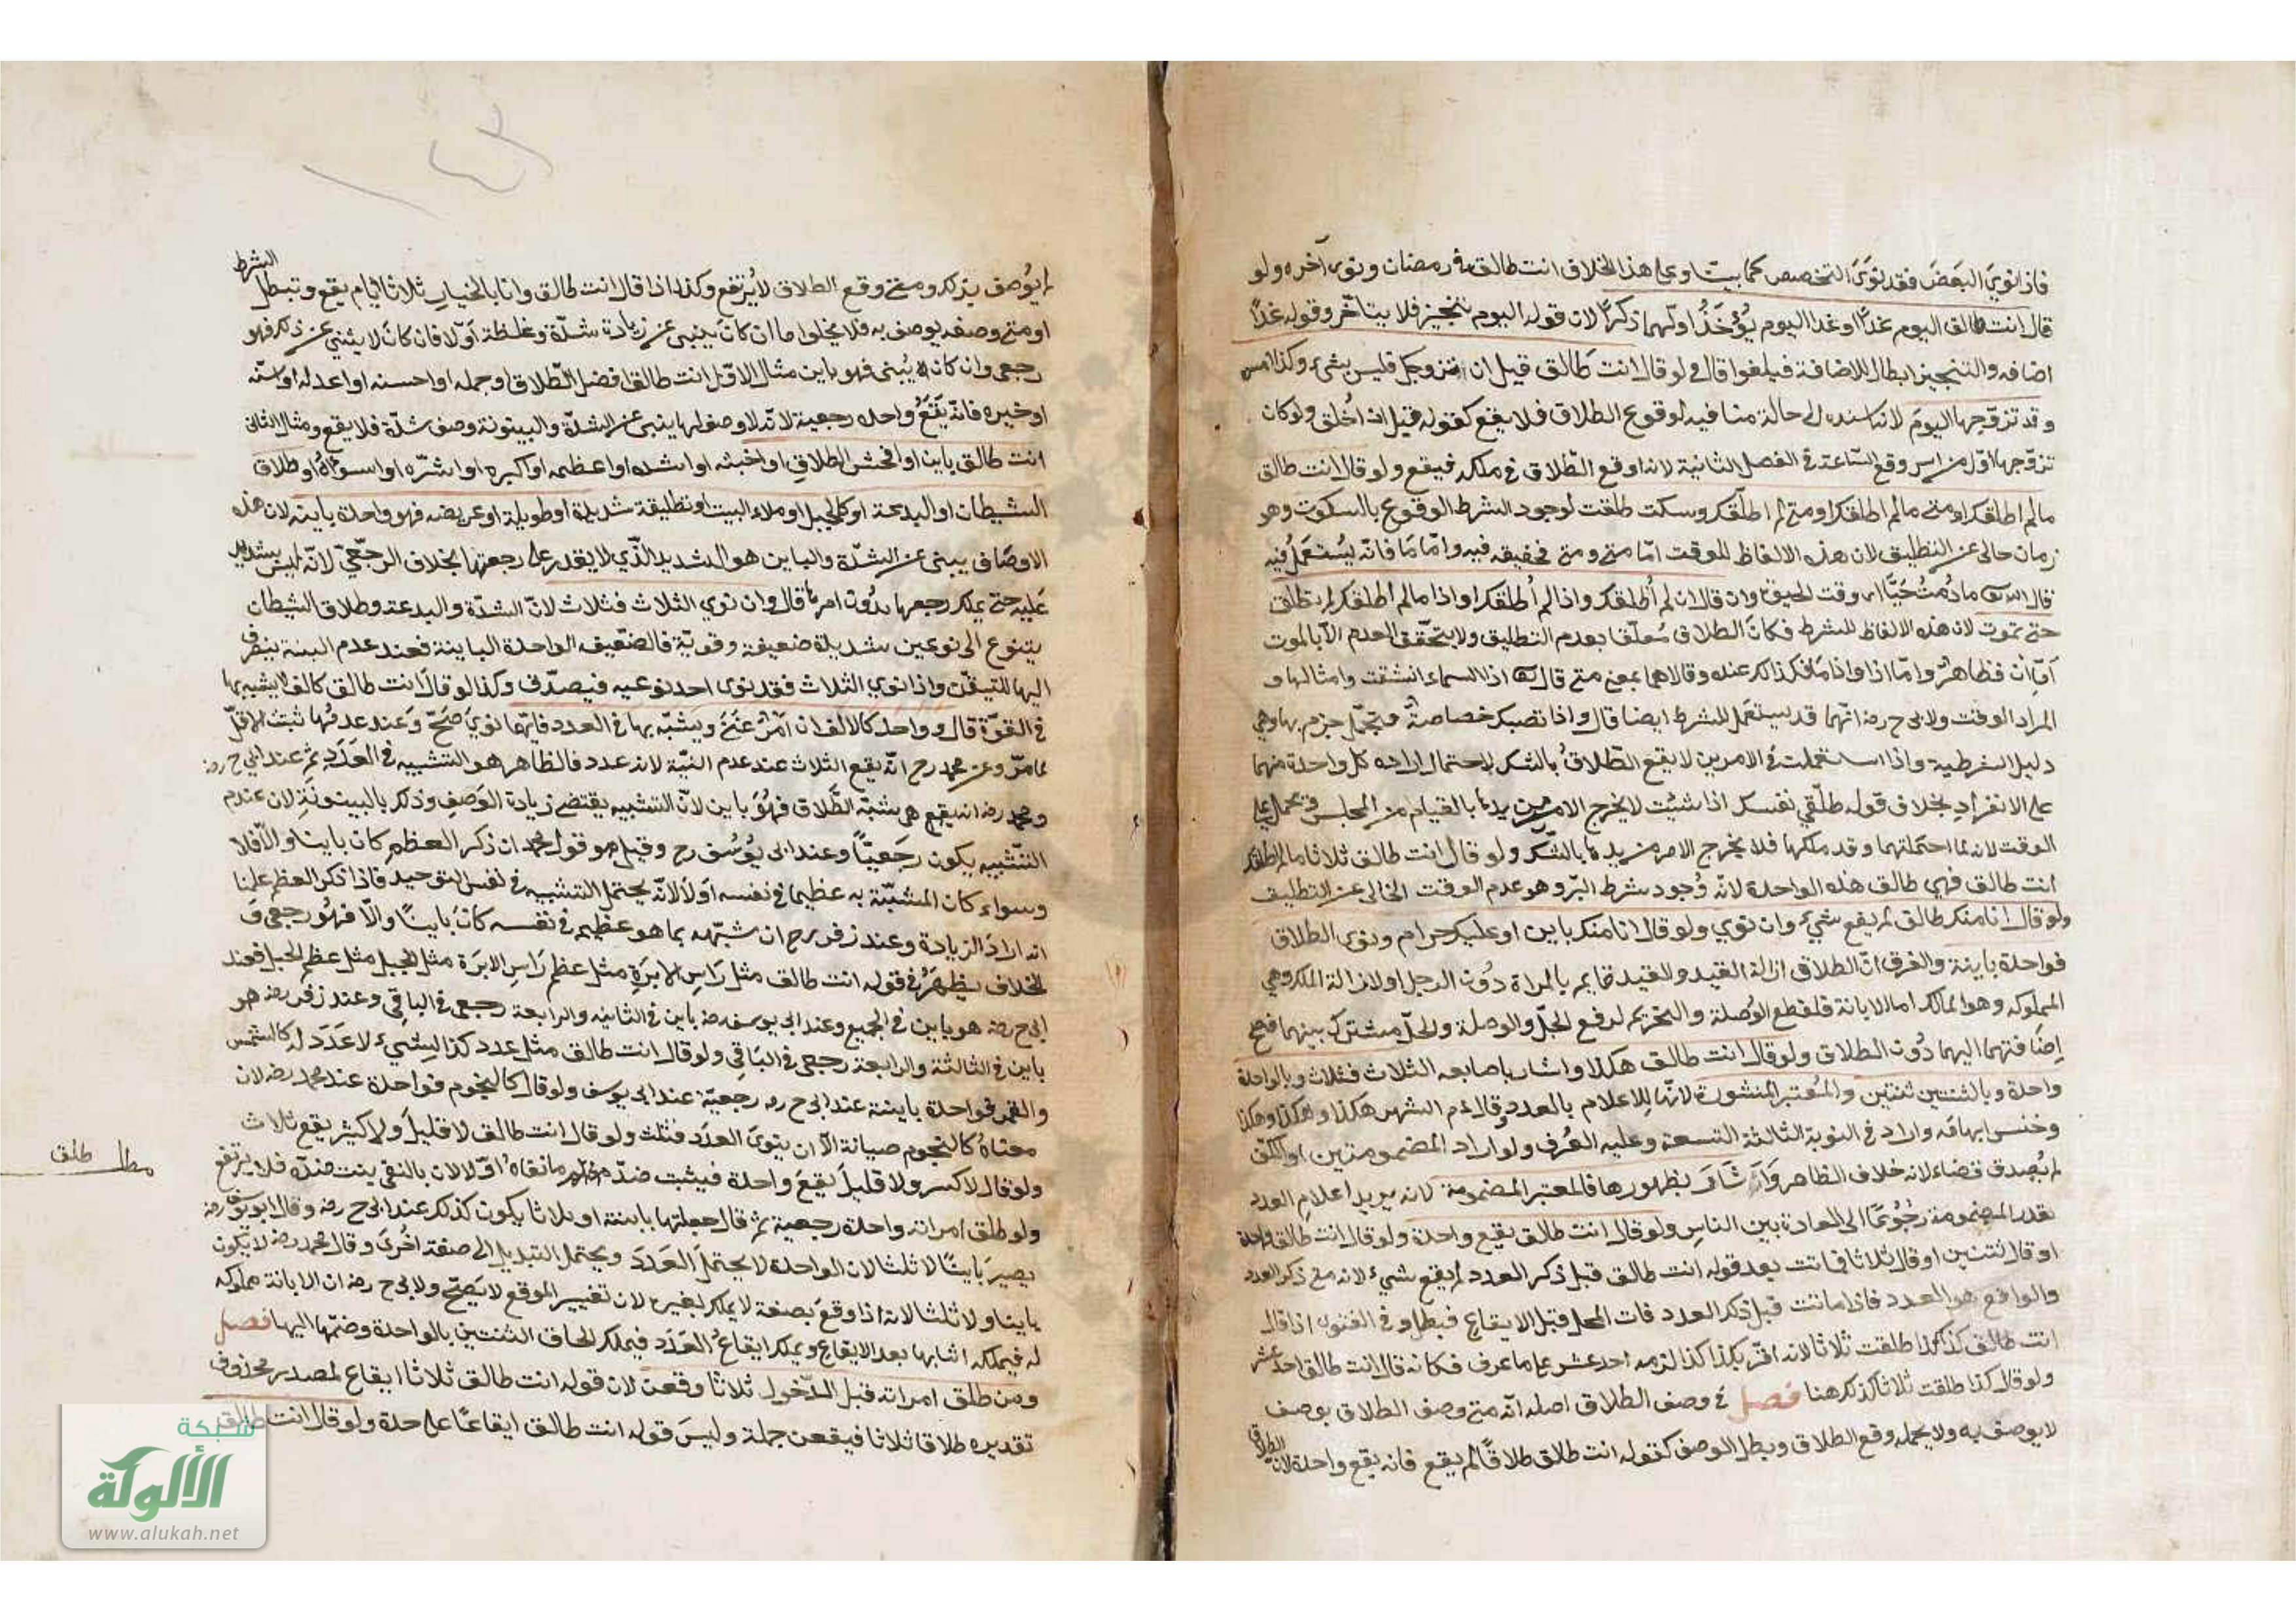 فاذا نوي البعض فقد نوى التخصيص كما بينا وعلى هذا الخلاف انت طالق في رمضان ونوى آخره ولو
قال انت طالق اليوم غدًا او غدا اليوم يؤخذ اولهما ذكرًا لان قوله اليوم تنجيز فلا يتأخر وقوله غدًا
اضافه والتنجيز ابطال للاضافة فيلغوا قال ولو قال انت طالق قبل ان اتزوجك فليس بشيء وكذا امس
وقد تزوجها اليوم لانه اسنده الى حالة منافيه لوقوع الطلاق فلا يقع كقوله قبل ان اخلق ولو كان
تزوجها اول من امس وقع الساعة في الفصل الثانية لانه اوقع الطلاق في ملكه فيقع ولو قال انت طالق
مالم اطلقك او متى مالم اطلقك او متى لم اطلقك وسكت طلقت لوجود الشرط الوقوع بالسكوت وهو
زمان خالى عن التطليق لان هذه الالفاظ للوقت امّا متى ومتى فحقيقه فيه وامّا ما فانه يستعمل فيه
قال الله تعالى مادُمتُ حَيًّا اى وقت الحيوة وان قال ان لم أطلقك واذا لم أطلقك او اذا مالم أطلقك لم تطلق
حتى تموت لان هذه الالفاظ للشرط فكان الطلاق مُعلّقا بعدم التطليق ولا يتحقق العدم الّا بالموت
أمّا ان فظاهرٌ وامّا اذا واذا ما فكذلك عنده وقالا هما بمعنى متى قال تعالى اذا السماء انشقت وامثالها و
المراد الوقت ولابى ح رضه انهما قد يستعمل للشرط ايضا قال واذا تصبك خصاصةٌ فتجمّل جزم بها وهى
دليل الشرطية واذا استعملت في الامرين لا يقع الطلاقُ بالشك لاحتمال اراده كل واحدة منهما
على الانفراد بخلاف قوله طلّقي نفسك اذا شئت لا يخرج الامر من يدها بالقيام من المجلس فيحمل على
الوقت لانه لما احتملتهما وقد ملكها فلا يخرج الامر من يدها بالشّك ولو قال انت طالق ثلاثا مالم اطلقك
انت طالق فهي طالق هذه الواحدة لانّه وُجود شرط البرّ وهو عدم الوقت الخالى عن التطليق
ولو قال انا منك طالق لم يقع شيء وان نوي ولو قال انا منك باين او عليك حرام ونوى الطلاق
فواحدة باينة والفرق انّ الطلاق ازالة القيد والقيد قايم بالمراة دُون الرجل او لازالة الملك وهي
المملوكه وهو المالك اما الابانة فلقطع الوُصلة والتحريم لرفع الحلّ والوصلة والحلّ مشترك بينهما فصح
إضافتهما اليهما دُون الطلاق ولو قال انت طالق هكذا واشار باصابعه الثلاث فثلاث وبالواحدة
واحدة وبالثنتين ثنتين والمُعتبر المنشورة لانّها للاعلام بالعدد وقال عم الشهر هكذا وهكذا وهكذا
وخنس ابهامه واراد في النوبة الثالثة التسعة وعليه العُرف ولو اراد المضمومتين او الكفّ
لم يُصدق قضاء لانه خلاف الظاهر واذ شار بظهورها فالمعتبر المضمومة لانه يريد اعلام العدد
بقدر المضمومة رجُوعًا الى العادة بين الناس ولو قال انت طالق يقع واحدة ولو قال انت طالق واحدة
او قال ثنتين او قال ثلاثا فماتت بعد قوله انت طالق قبل ذكر العدد لم يقع شيء لانه متى ذكر العدد
والواقع هو العدد فاذا ماتت قبل ذكر العدد فات المحل قبل الايقاع فبطل وفي الفتوى اذا قال
انت طالق كذا كذا طلقت ثلاثا لانه اقر بكذا كذا لزمه احد عشر على ما عرف فكانه قال انت طالق احد عشر
ولو قال كذا طلقت ثلاثا كذلك هنا فصل في وصف الطلاق اصله انّه متى وصف الطلاق بوصف
لا يوصف به ولا يحمله وقع الطلاق وبطل الوصف كقوله انت طالق طلاقًا لم يقع فانه يقع واحدة لان الطلاق
لم يُوصف بذلك ومتى وقع الطلاق لا يُرتفع وكذا اذا قال انت طالق وانا بالخيار ثلاثا ايام يقع وتبطل الشرط
او متى وصفه يوصف به فلا يخلوا ما ان كان ينبى عن زيادة شدّة وغلظة اوّلا فان كان لا يبنى عن ذلك فهو
رجعى وان كان يُبنى فهو باين مثال الاوّل انت طالق افضل الطّلاق او جمله او احسنه او اعدله او اسنّه
او خيره فانّه يَقَعُ واحده رجعية لانّه لا وصف لها ينبى عن الشدّة والبينونة وصف شدّة فلا يقع ومثال الثانى
انت طالق باين او افحش الطلاق او اخبثه او اشده او اعظمه او اكبره او اشرّه او اسوءاه او طلاق
الشيطان او البدعة او كالجبل او ملاء البيت او تطليقة شديدة او طويلة او عريضه فهو واحدة باينه لان هذه
الاوصاف يبنى عن الشدّة والباين هو الشديد الّذي لا يقدر على رجعتها بخلاف الرجعّي لانّه ليس بشديد
عَليه حتى يملك رجعها بدُون امرها قال وان نوي الثلاث فثلاث لانّ الشدّة والبدعة وطلاق الشيطان
يتنوع الى نوعين شديدة ضعيفة وقويّة فالضّعيف الواحدة الباينة فعند عدم البينة ينصرف
اليها للتيقّن واذا نوي الثلاث فقد نوى احد نوعيه فيصدّق وكذا لو قال انت طالق كالف لانه يشبه بها
في القوّة قال وواحد كالالف ان ويشبّه بها في العدد فايّهما نويَ صَحَّ وَعند عدمُها ثبت الاقلّ
لما مرّ وعن محمد رح انّه يقع الثلاث عند عدم النيّة لانه عدد فالظاهر هو التشبيه في العَدَد ثم عند ابي ح رضه
ومحمد رضه انه يقع هى شبّه الطَّلاق فهُوَ باين لانّ التشبيه يقتضى زيادة الوَصف وذلك بالبينونَةِ لان عندم
التّشبيه يكون رجَعيًّا وعند ابى يُوسُف رح وقيل هو قول محمد ان ذكر العظم كان باينا والّا فلا
وسواء كان المشبّة به عظيما في نفسه اَولا لانّه يحتمل التشبيه في نفس التوحيد فاذا ذكر العظم علمنا
انه ارادَ الزيادة وعند زفر رح ان شبّهه بما هو عظيم في نفسه كانَ باينًا والّا فهُو رجعى وَ
الخلاف يظهَرُ في قوله انت طالق مثل رَاسِ الابرَةِ مثل عظم رَاسِ الابرَة مثل الجبل مثل عظم الجبل فعند
ابى ح رضه هو باين في الجميع وعند ابى يوسف رضه باين في الثانيه والرابعة رجعى في الباقى وعند زفر رضه هو
باين في الثالثة والرابعة رجعى في البَاقِى ولو قال انت طالق مثل عدد كذا لِشيء لا عَدَدَ له كالشمس
والقمر فواحدة باينة عند ابى ح رضه رجعيّة عند ابى يوسف ولو قال كالنجوم فواحدة عند محمد رضه لان
معناهُ كالنجوم صيانة الّا ان ينوىَ العدَد فثلث ولو قال انت طالق لا قليلَ ولا كثير يقع ثلاث
ولو قال لا كسر ولا قليلَ يقعَ واحدة فيثبت ضدّ مانفاه اوّلا لان بالنفى يثبت ضدّه فلا يرتفع
ولو طلق امراته واحدة رجعية ثم قال جعلتها باينة او ثلاثا يكون كذلك عند ابى ح رضه وقال ابو يوسف رضه
يصيرَ باينًا لا ثلثا لان الواحدة لا يحتمل العَدَدَ ويحتمل التبديل الى صفة اُخرىَ وقال محمد رضه لا يكون
باينا ولا ثلثا لانه اذا وقعَ بصفة لا يملك تغيره لان تغيير الموقع لا يَصحّ ولابى ح رضه ان الابانة مملوكه
له فيملكه اثابها بعد الايقاع ويملك ايقاعُ العَدَد فيملك الحاق الثنتين بالواحدة وضمّها اليها فصل
ومن طلق امراته قبل الدّخول ثلاثا وقعن لان قوله انت طالق ثلاثا ايقاع لمصدر محذوف
تقديره طلاقا ثلاثا فيقعن جملة وليسَ قوله انت طالق ايقاعًا على حدة ولو قال انت طالق
مطلب طلق
شبكة
الألوكة
www.alukah.net